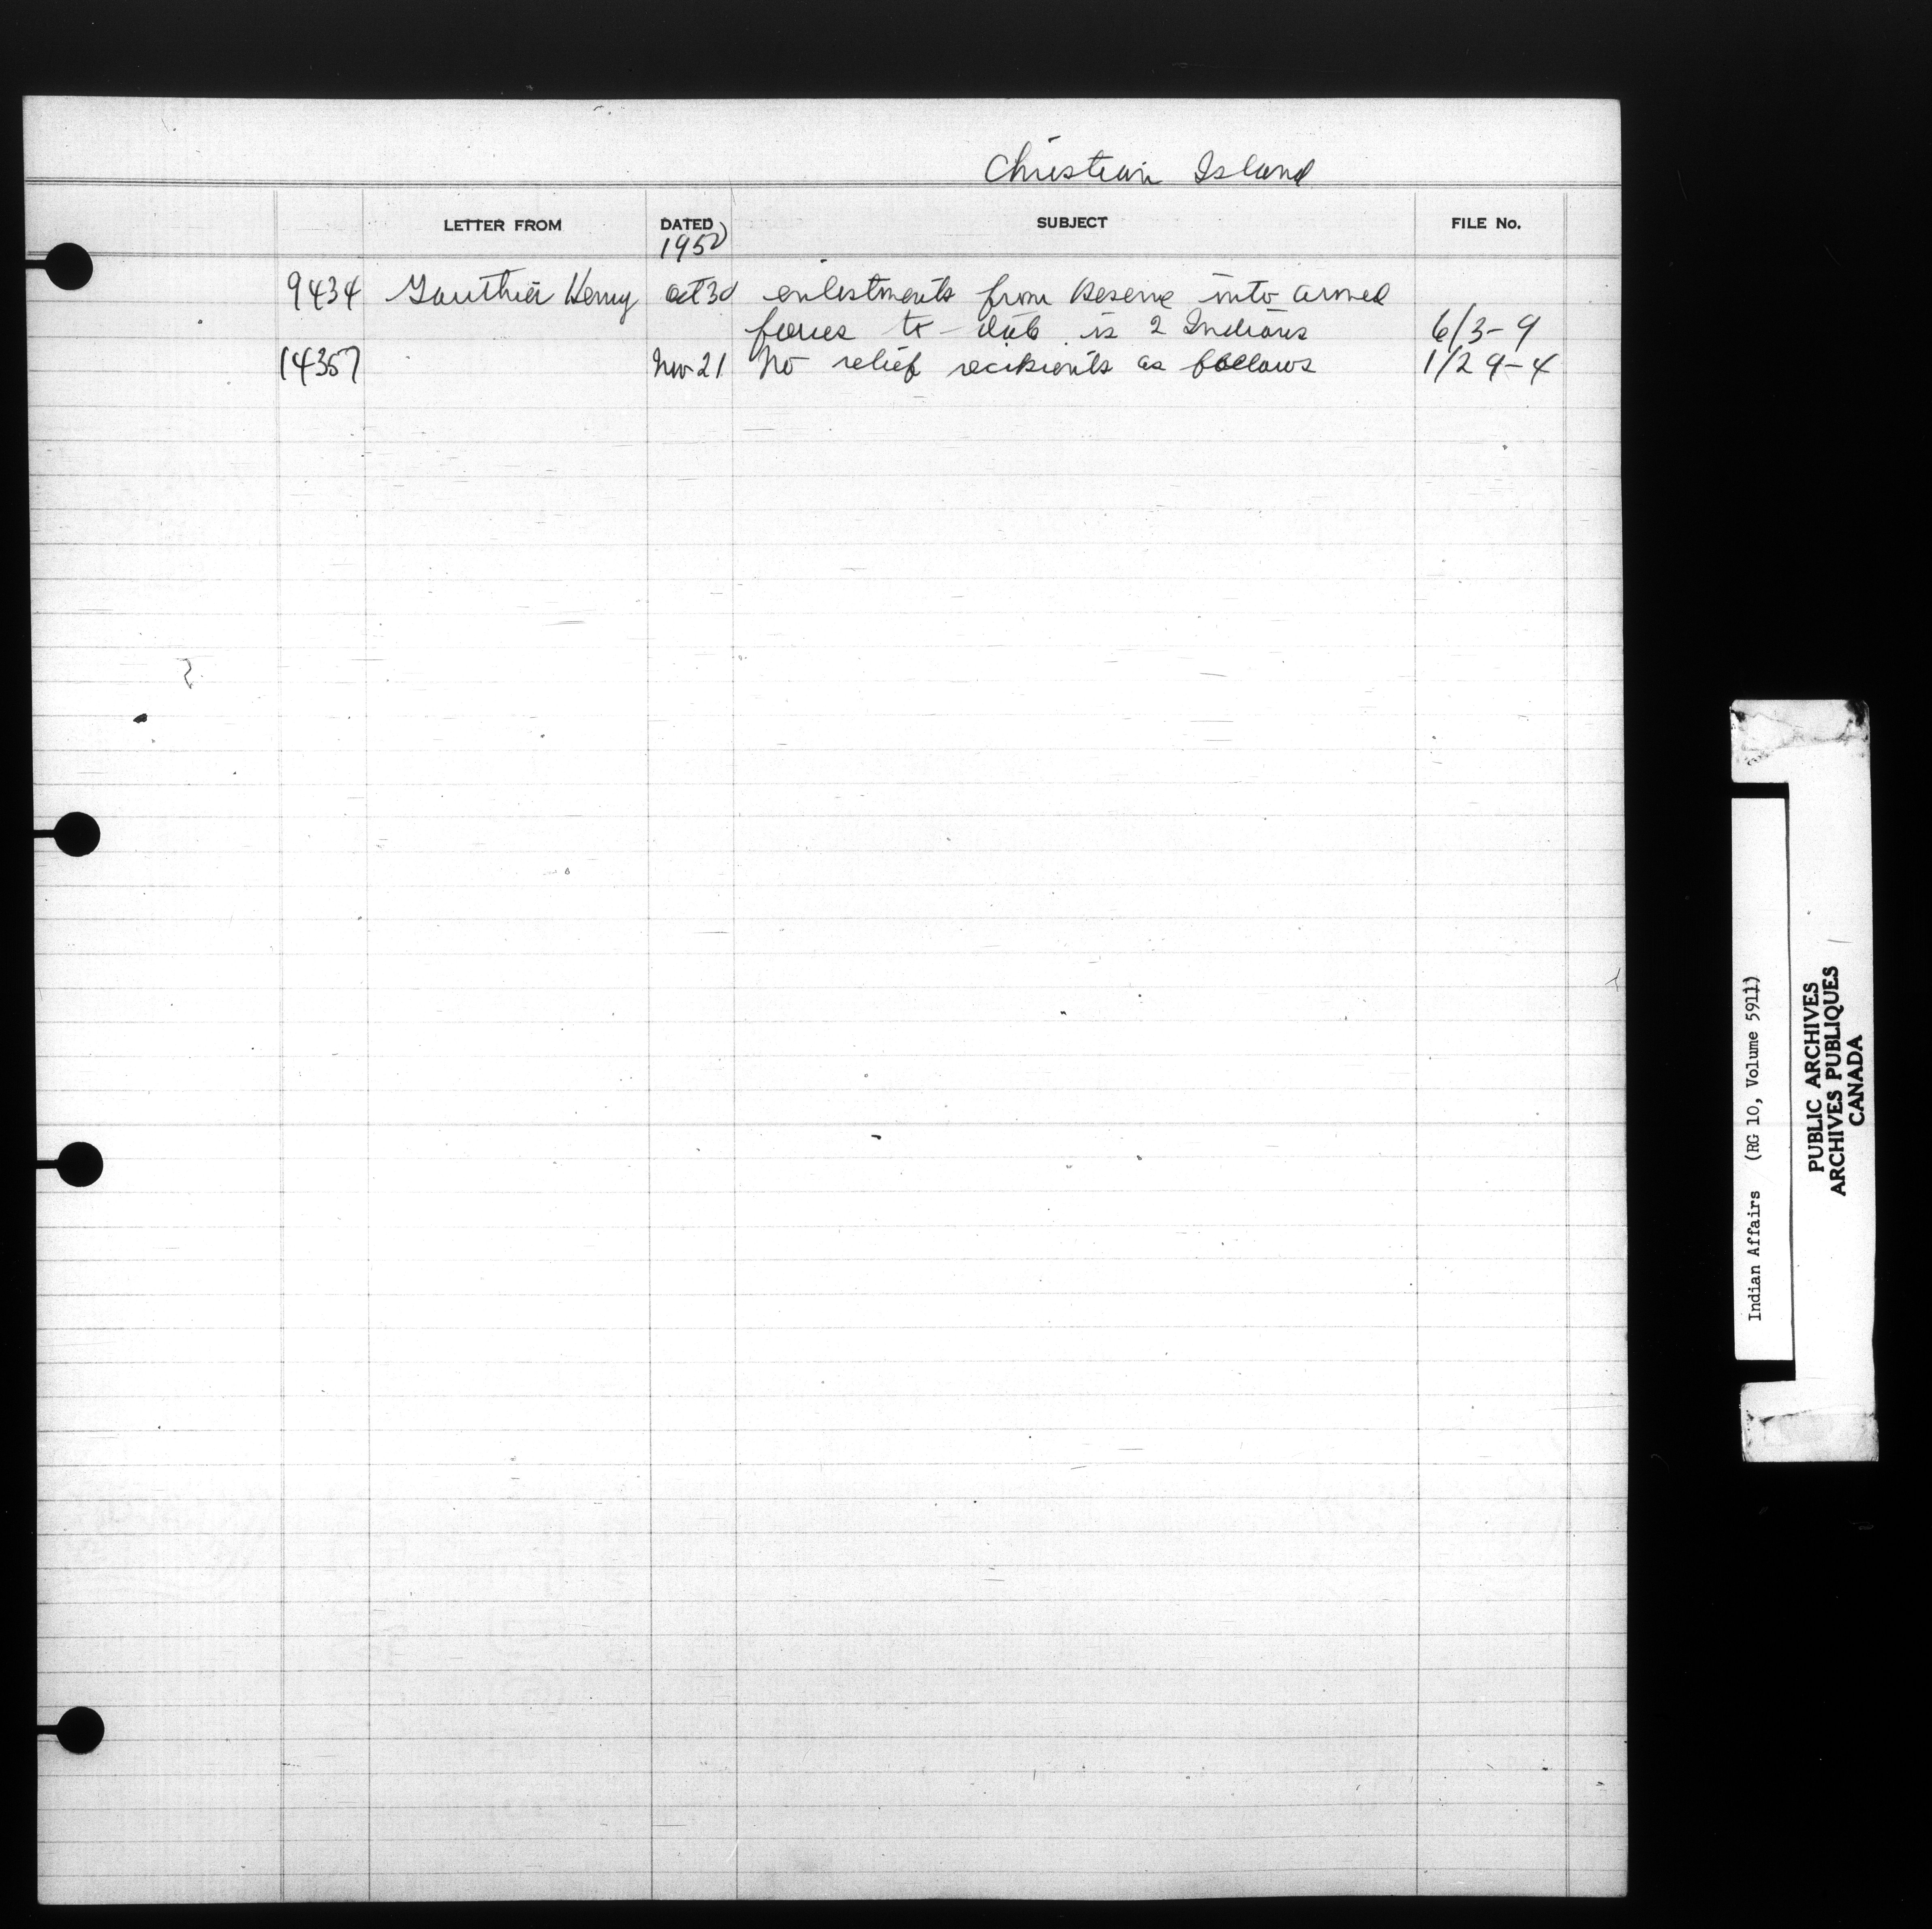 Christian Island
LETTER FROM DATED SUBJECT FILE No.
1950
9434 Gauthier Henry Oct 30 enlistments from Reserve into armed
forces to-date is 2 Indians 6/3-9
14357 Nov 21 No relief recipients as follows 1/29-4
Indian Affairs (RG 10, Volume 5911)
PUBLIC ARCHIVES
ARCHIVES PUBLIQUES
CANADA